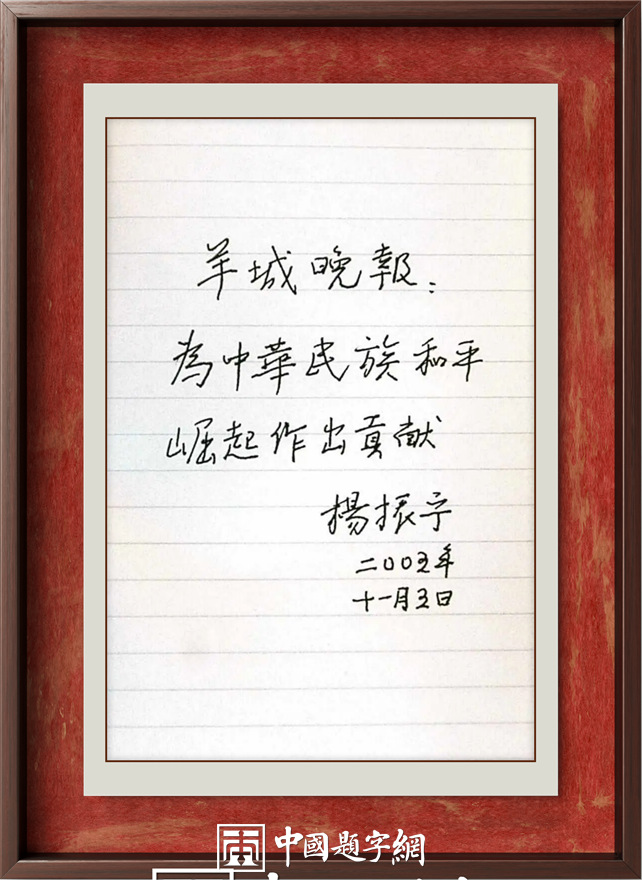 羊城晚報：
為中華民族和平
崛起作出貢献
楊振宁
二〇〇五年
十一月五日
中國題字網